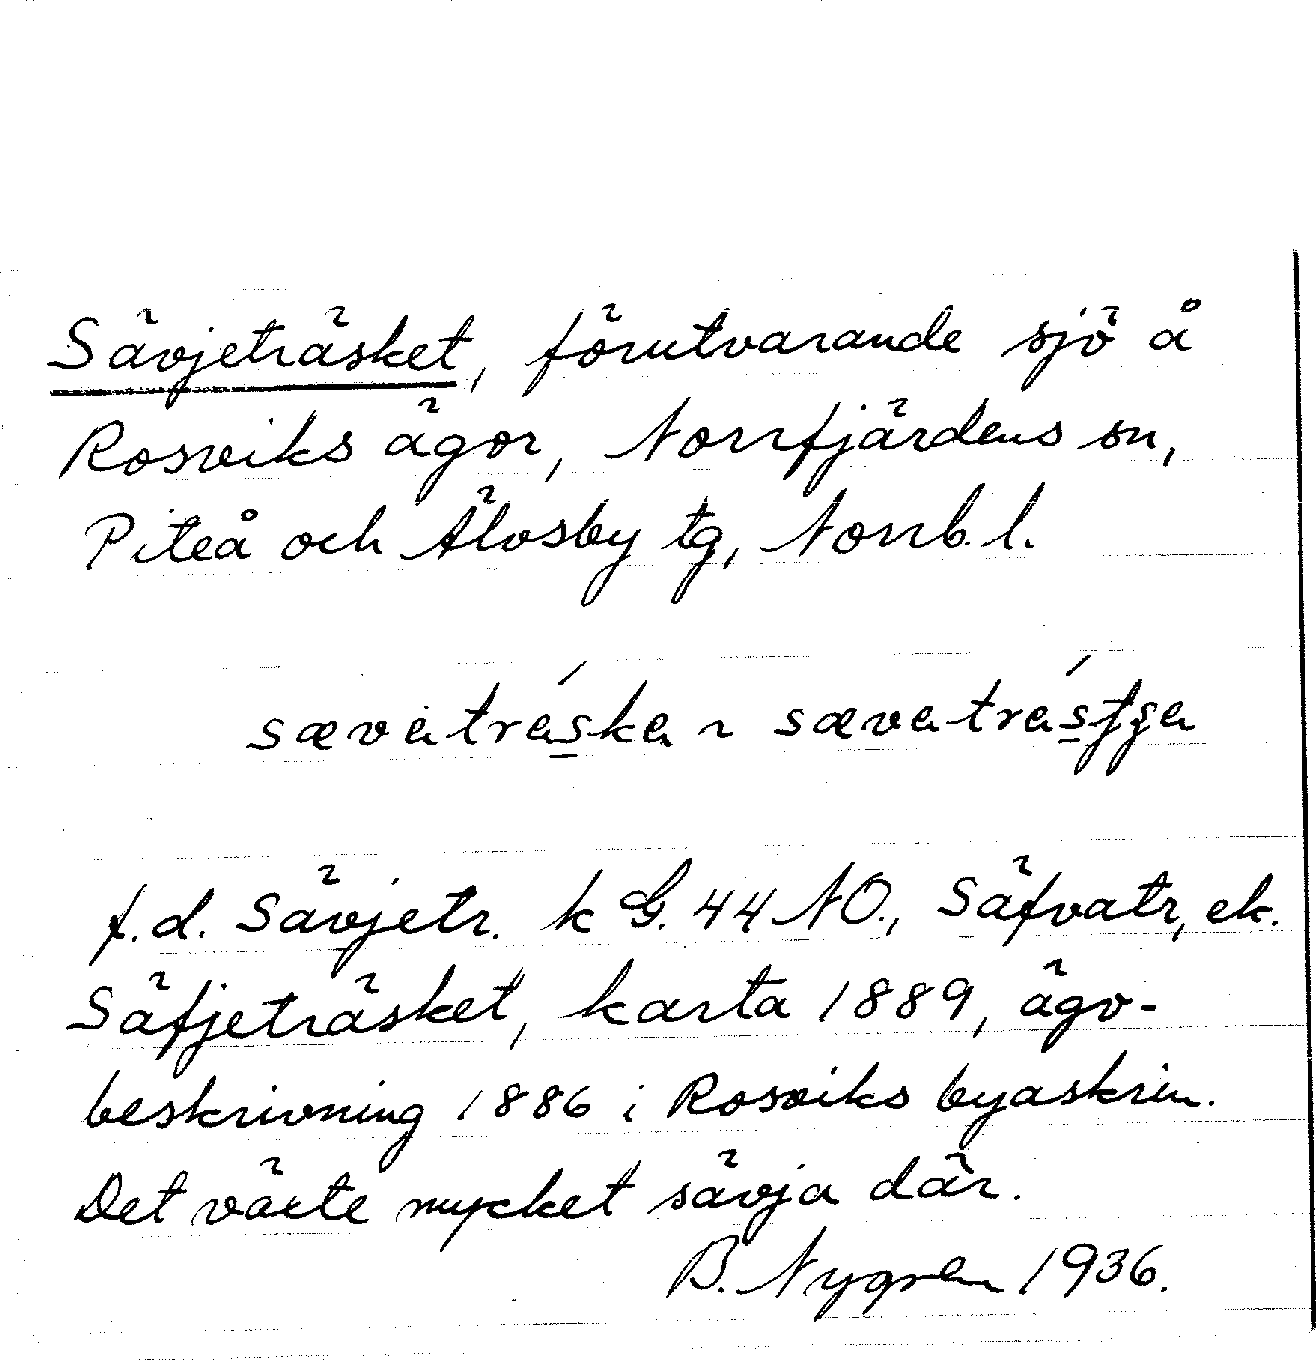 Sävjeträsket, förutvarande sjö å
Rosviks ägor, Norrfjärdens sn,
Piteå och Älvsby tg, Norrb. l.
f.d. Sävjetr. k G. 44 NO., Säfvatr, ek.
Säfjeträsket, karta 1889, ägo-
beskrivning 1886 i Rosviks byaskrin.
Det växte mycket sävja där.
B. Nygren 1936.